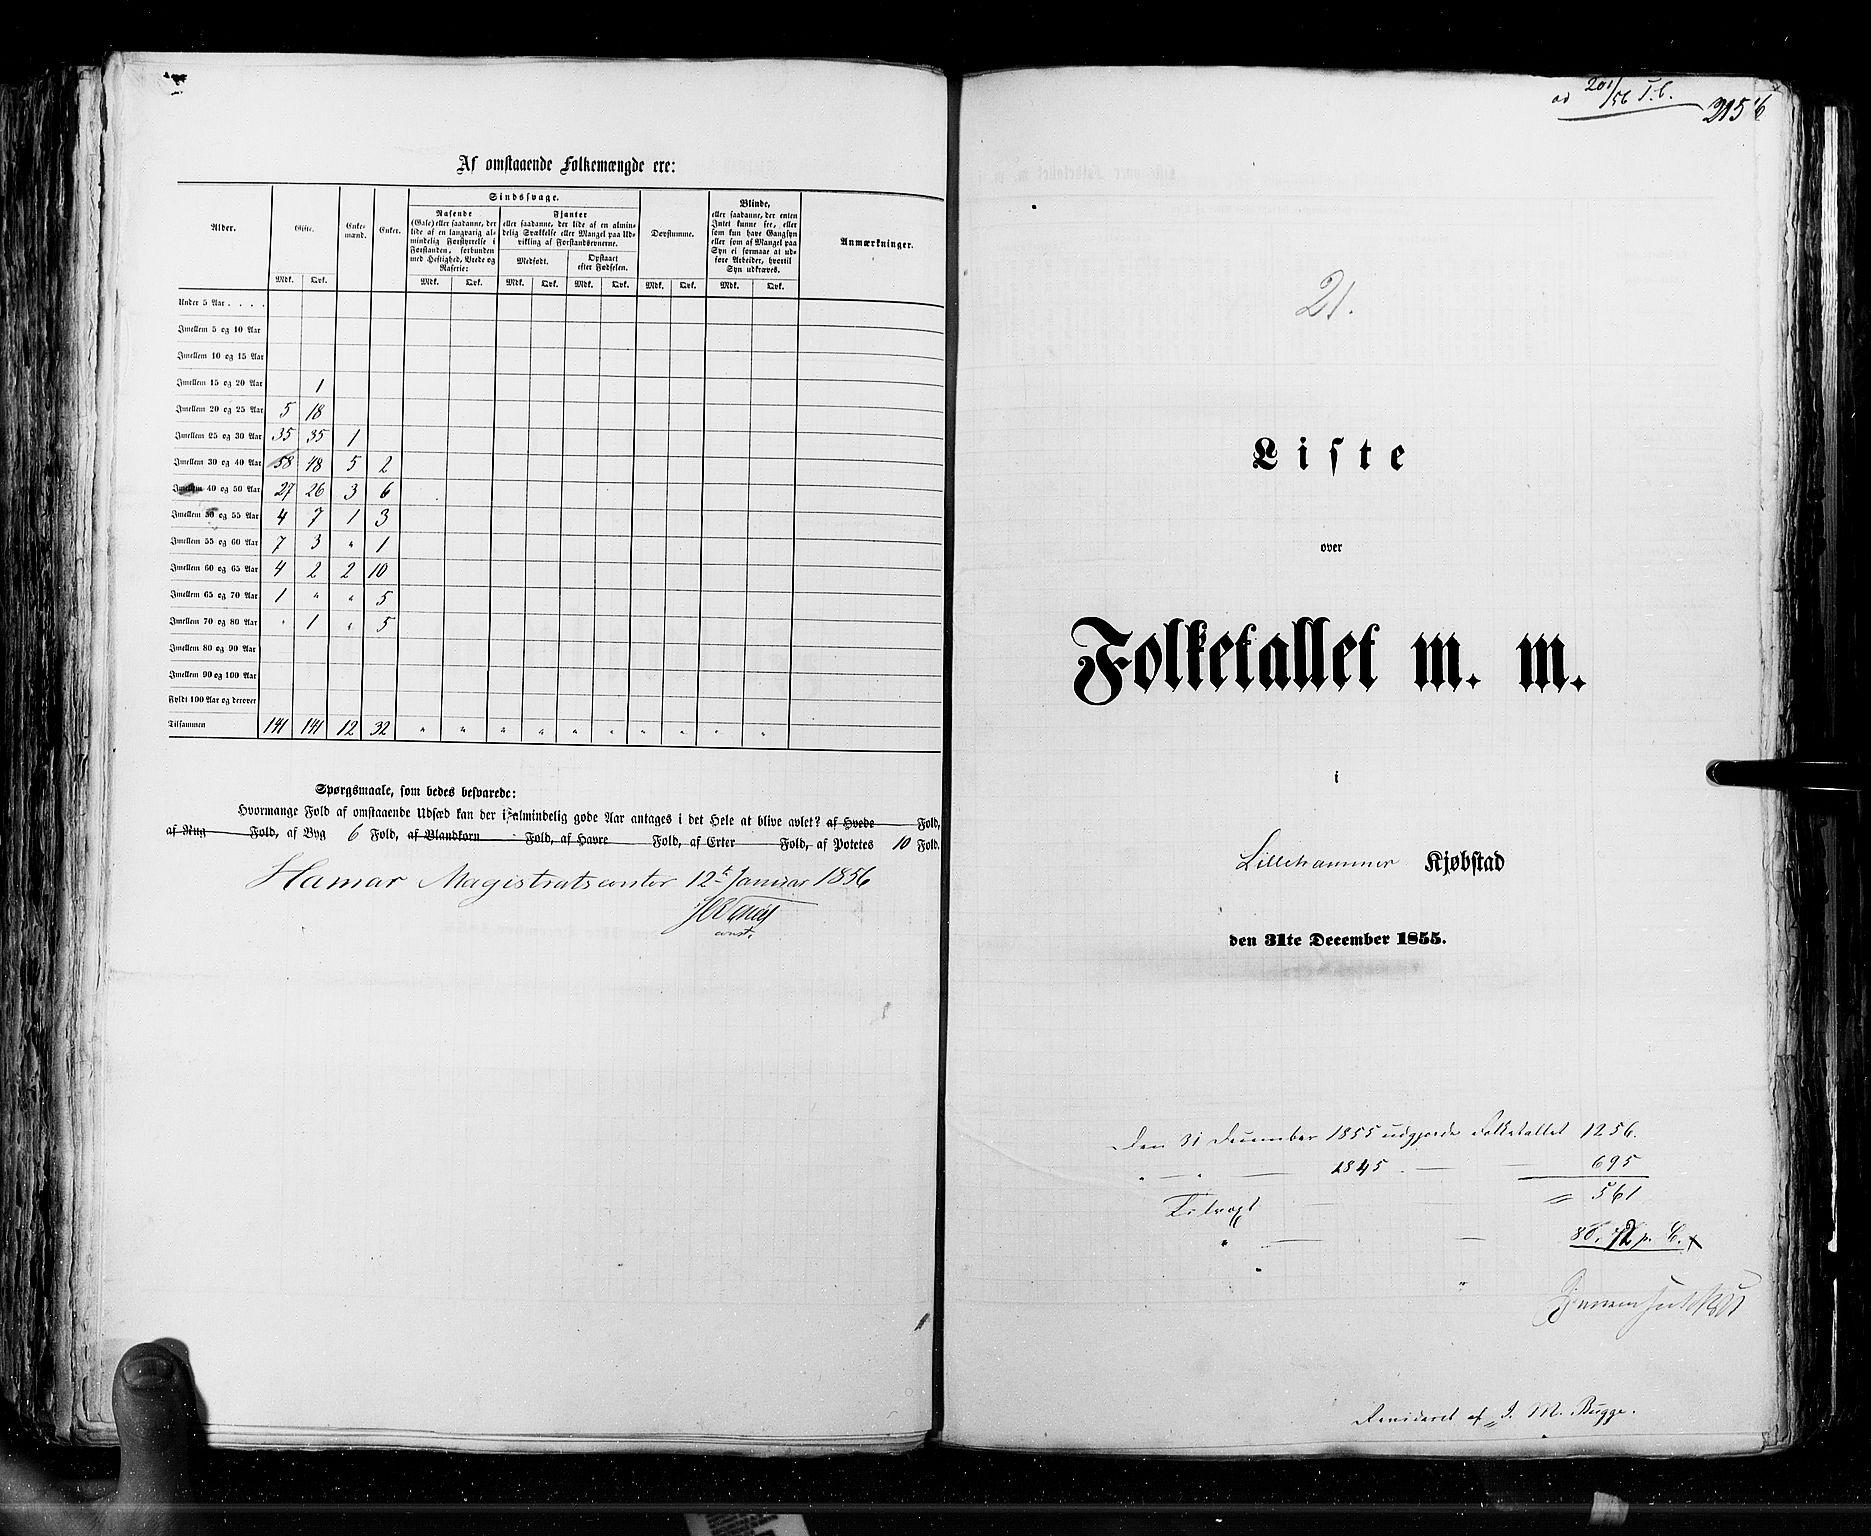 Af omstaaende Folkemængde ere:
Alder. Gifte. Enke-mænd. Enker. Sindssvage. Døvstumme. Blinde, Anmærkninger.
Rasende (Gale) eller saadanne, der lide af en langvarig almindelig Forstyrrelse i Forstanden, forbunden med Heftighed, Vrede og Raserie:
Fjanter eller saadanne, der lide af en almindelig Svækkelse eller Mangel paa Udvikling af Forstandsevnerne.
Medfødt. Opstaaet efter Fødselen.
eller saadanne, der enten Intet kunne see, eller som kun have Gangsyn eller som af Mangel paa Syn ei formaae at udføre Arbeider, hvortil Syn udkræves.
Mdk. Qvk. Mdk. Qvk. Mdk. Qvk. Mdk. Qvk. Mdk. Qvk. Mdk. Qvk.
Under 5 Aar . . . .
Imellem 5 og 10 Aar
Imellem 10 og 15 Aar
Imellem 15 og 20 Aar 1
Imellem 20 og 25 Aar 5 18
Imellem 25 og 30 Aar 35 35 1
Imellem 30 og 40 Aar 58 48 5 2
Imellem 40 og 50 Aar 27 26 3 6
Imellem 50 og 55 Aar 4 7 1 3
Imellem 55 og 60 Aar 7 3 " 1
Imellem 60 og 65 Aar 4 2 2 10
Imellem 65 og 70 Aar 1 " " 5
Imellem 70 og 80 Aar " 1 " 5
Imellem 80 og 90 Aar
Imellem 90 og 100 Aar
Fyldt 100 Aar og derover
Tilsammen 141 141 12 32 " " " " " " " " " "
Spørgsmaale, som bedes besvarede:
Hvormange Fold af omstaaende Udsæd kan der i almindelig gode Aar antages i det Hele at blive avlet? af Hvede Fold,
af Rug Fold, af Byg 6 Fold, af Blandkorn Fold, af Havre Fold, af Erter Fold, af Potetes 10 Fold.
Hamar Magistratscontor 12te Januar 1856
const.
ad 201/56 T.b.
21.
Liste
over
Folketallet m. m.
i
Lillehammer Kjøbstad
den 31te December 1855.
Den 31 December 1855 udgjorde Folketallet 1256.
" — " — 1845 — — 695
Tilvæxt — — = 561
" — — 80,72 p. C.
Revideret af J. M. Bugge.